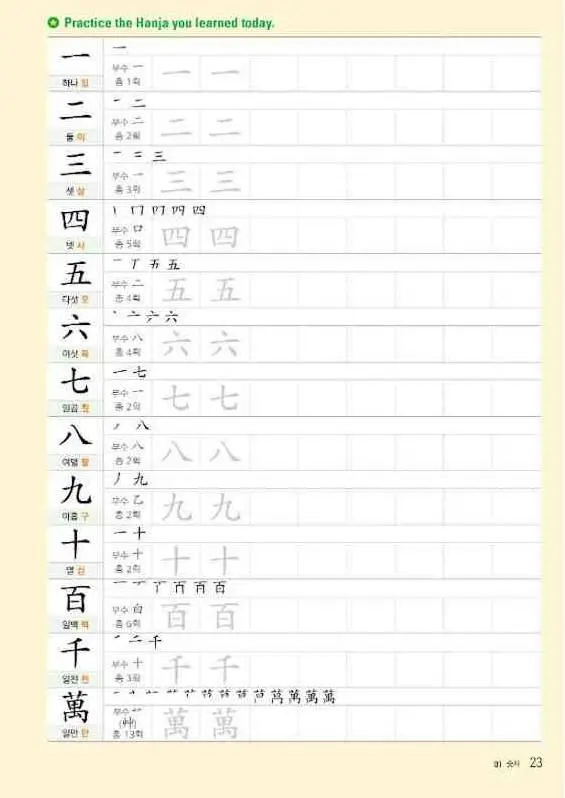 Practice the Hanja you learned today.
一
一
부수 一 一 一
하나 일 총 1획
一 二
二
부수 二 二 二
둘 이 총 2획
一 二 三
三
부수 一 三 三
셋 삼 총 3획
丨 冂 四
四
부수 口 四 四
넷 사 총 5획
一 丅 五 五
五
부수 二 五 五
다섯 오 총 4획
丶 亠 六 六
六
부수 八 六 六
여섯 육 총 4획
一 七
七
부수 一 七 七
일곱 칠 총 2획
丿 八
八
부수 八 八 八
여덟 팔 총 2획
丿 九
九
부수 乙 九 九
아홉 구 총 2획
一 十
十
부수 十 十 十
열 십 총 2획
一 百
百
부수 白 百 百
일백 백 총 6획
二 千
千
부수 十 千 千
일천 천 총 3획
萬 萬 萬
萬
부수 艹 萬 萬
(艸)
일만 만 총 13획
01 숫자 23